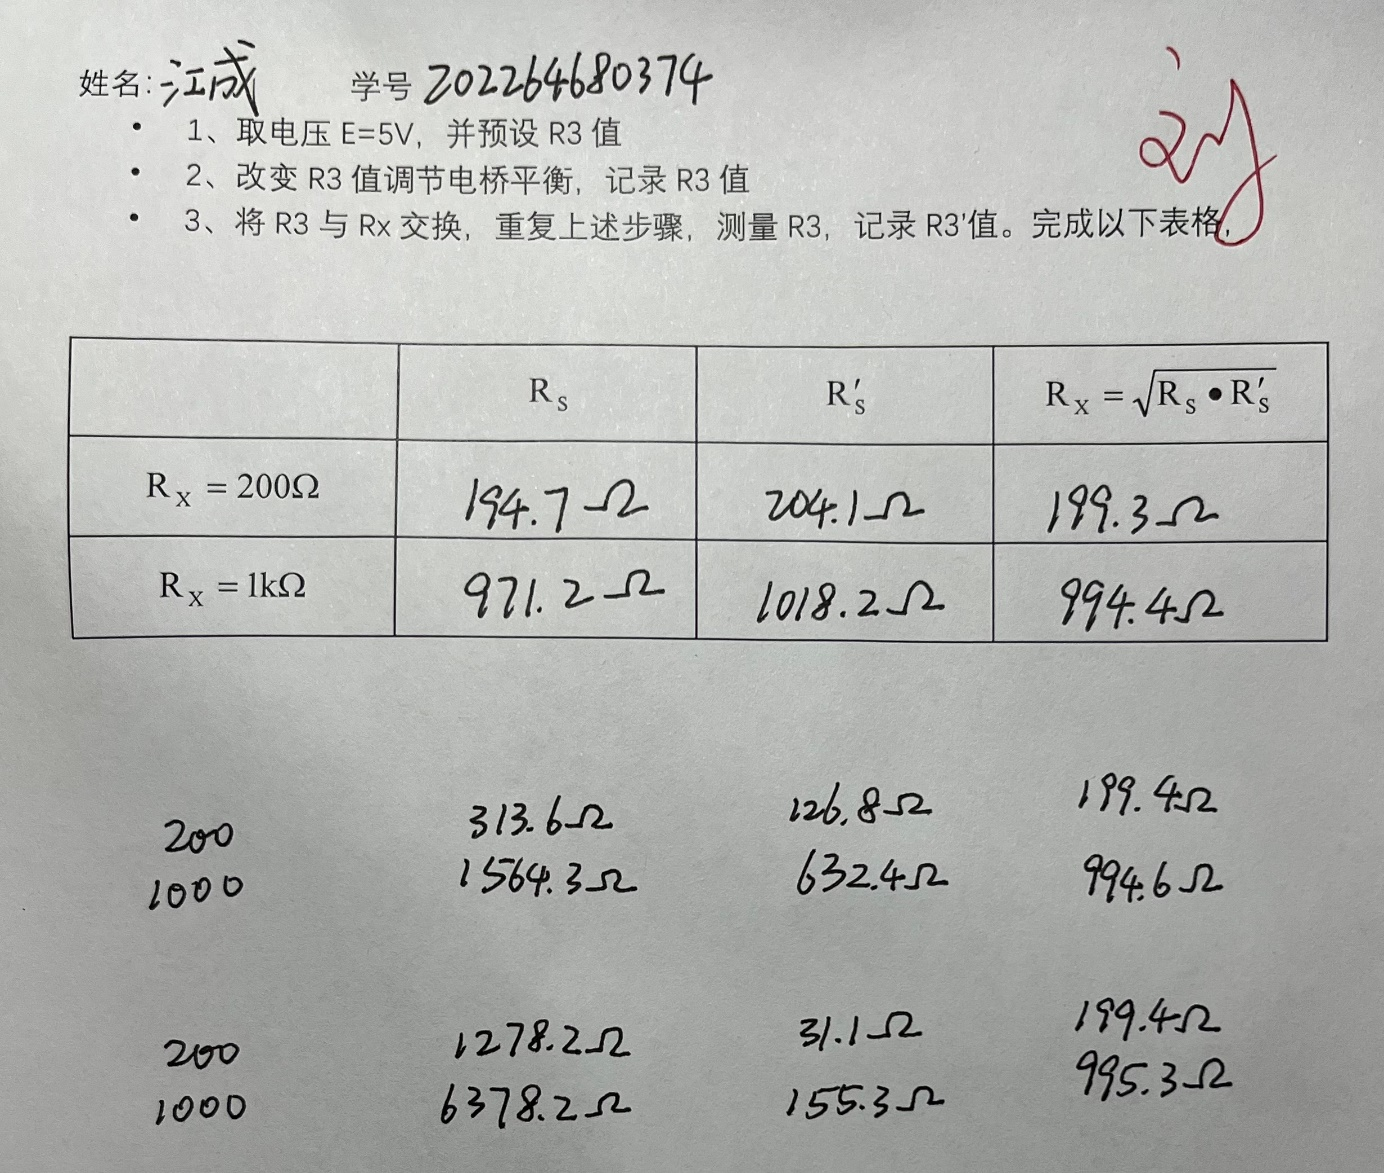 姓名:江成 学号 202264680374
• 1、取电压 E=5V，并预设 R3 值
• 2、改变 R3 值调节电桥平衡，记录 R3 值
• 3、将 R3 与 Rx 交换，重复上述步骤，测量 R3，记录 R3'值。完成以下表格，
R_S R'_S R_X = √R_S • R'_S
R_X = 200Ω 194.7Ω 204.1Ω 199.3Ω
R_X = 1kΩ 971.2Ω 1018.2Ω 994.4Ω
200 313.6Ω 126.8Ω 199.4Ω
1000 1564.3Ω 632.4Ω 994.6Ω
200 1278.2Ω 31.1Ω 199.4Ω
1000 6378.2Ω 155.3Ω 995.3Ω